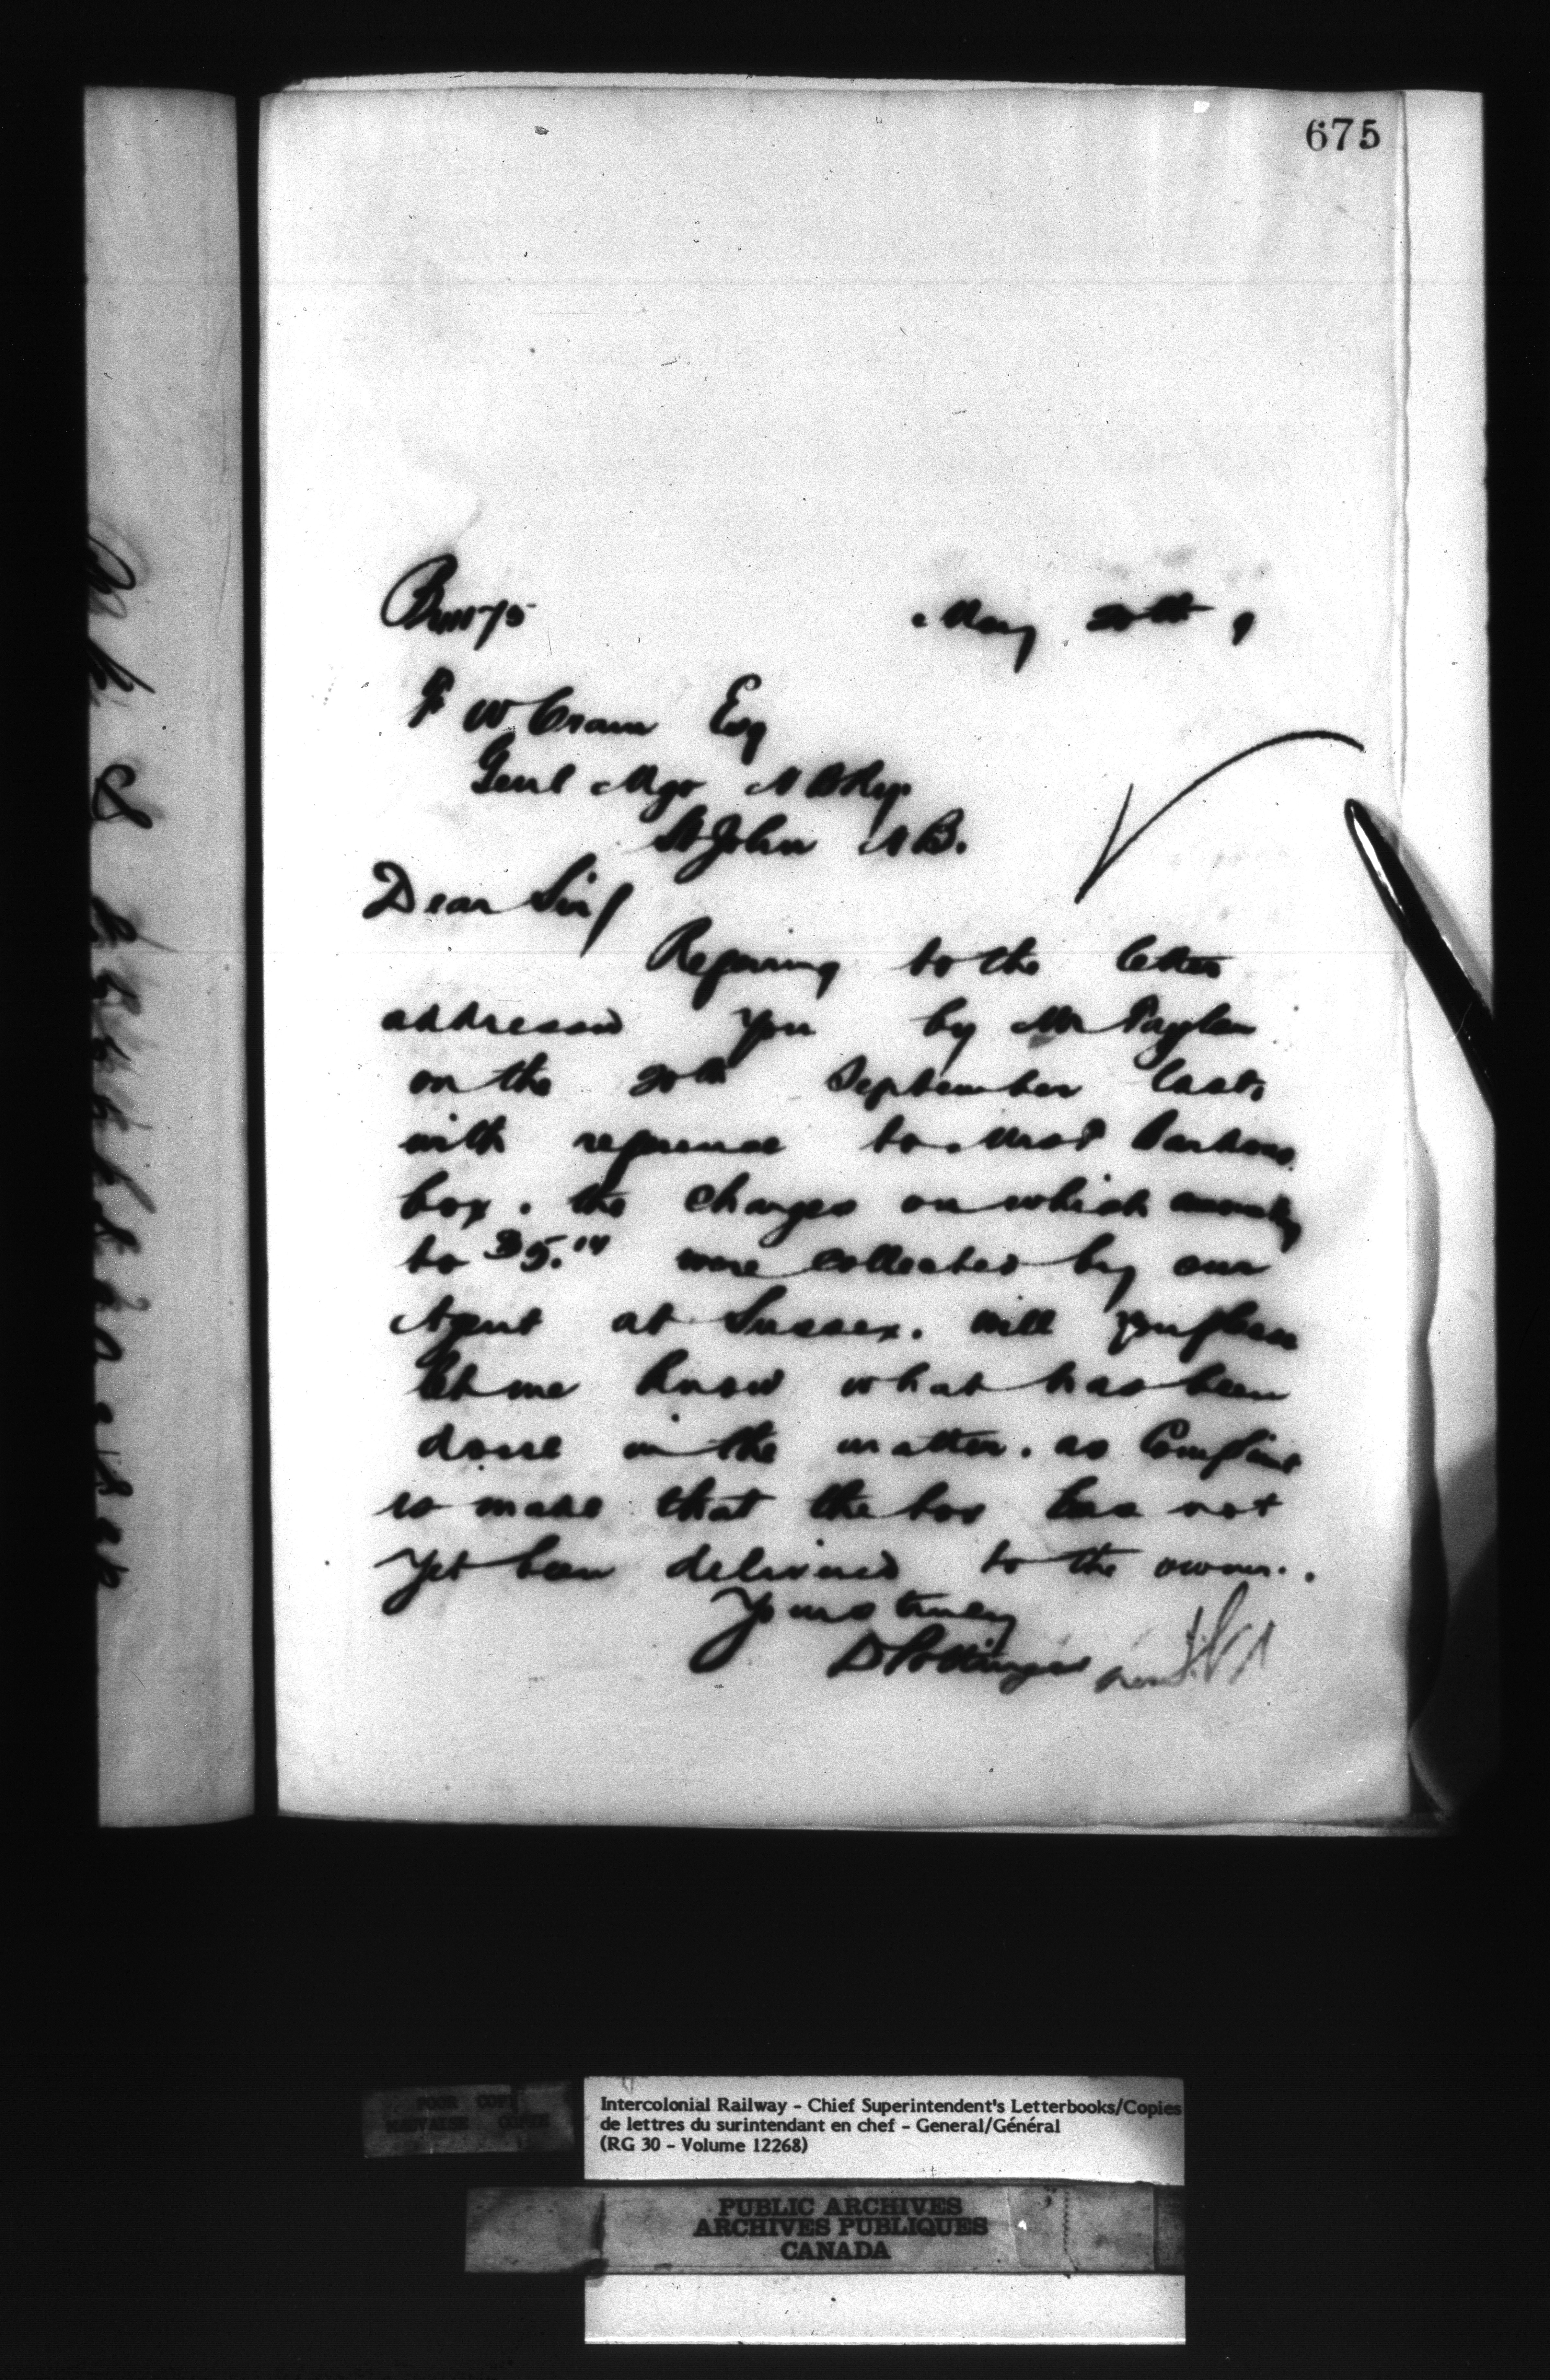 675
May 20th 9
F W Cram Esq
Genl Mgr N B Ry
St John N B.
Dear Sir/
Refering to the letter
addressed you by Mr Taylor
on the 20th September last,
with reference to Mrs
box. the charges on which amounting
to $5. were collected by our
Agent at Sussex. Will you please
let me know what has been
done in the matter. as Complaint
is made that the box has not
yet been delivered to the owner.
Yours truly
D Pottinger
POOR COPY
MAUVAISE COPIE
Intercolonial Railway - Chief Superintendent's Letterbooks/Copies
de lettres du surintendant en chef - General/Général
(RG 30 - Volume 12268)
PUBLIC ARCHIVES
ARCHIVES PUBLIQUES
CANADA